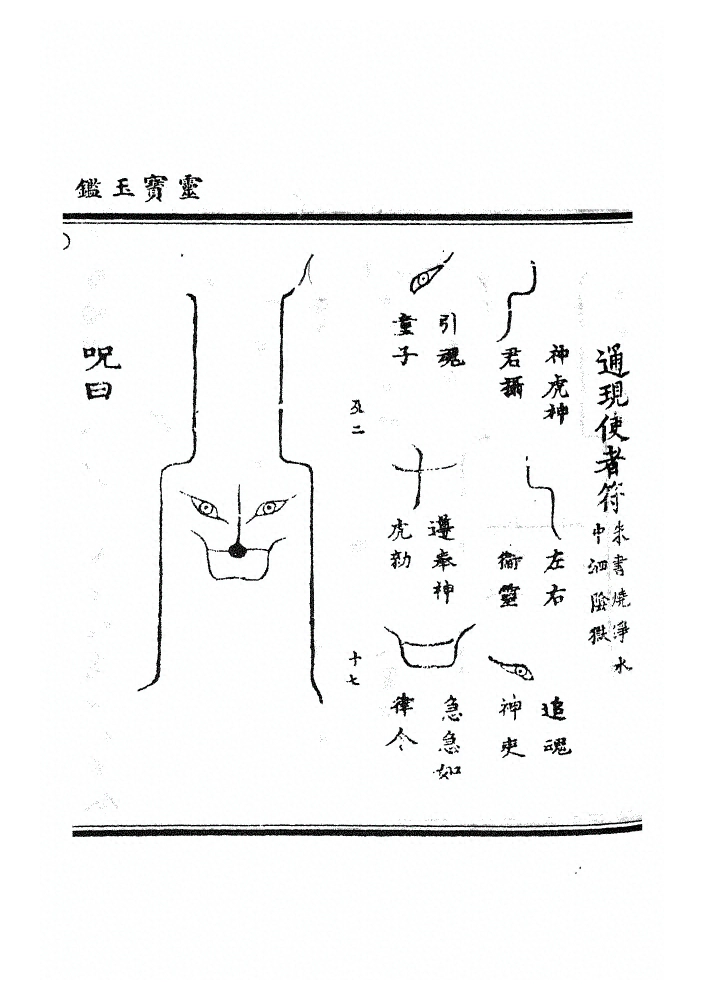 靈寶玉鑑
通現使者符
朱書燒淨水
中洒陰獄
神虎神
君攝
左右
衛靈
追魂
神吏
引魂
童子
遵奉神
虎勑
急急如
律令
二
十七
呪曰